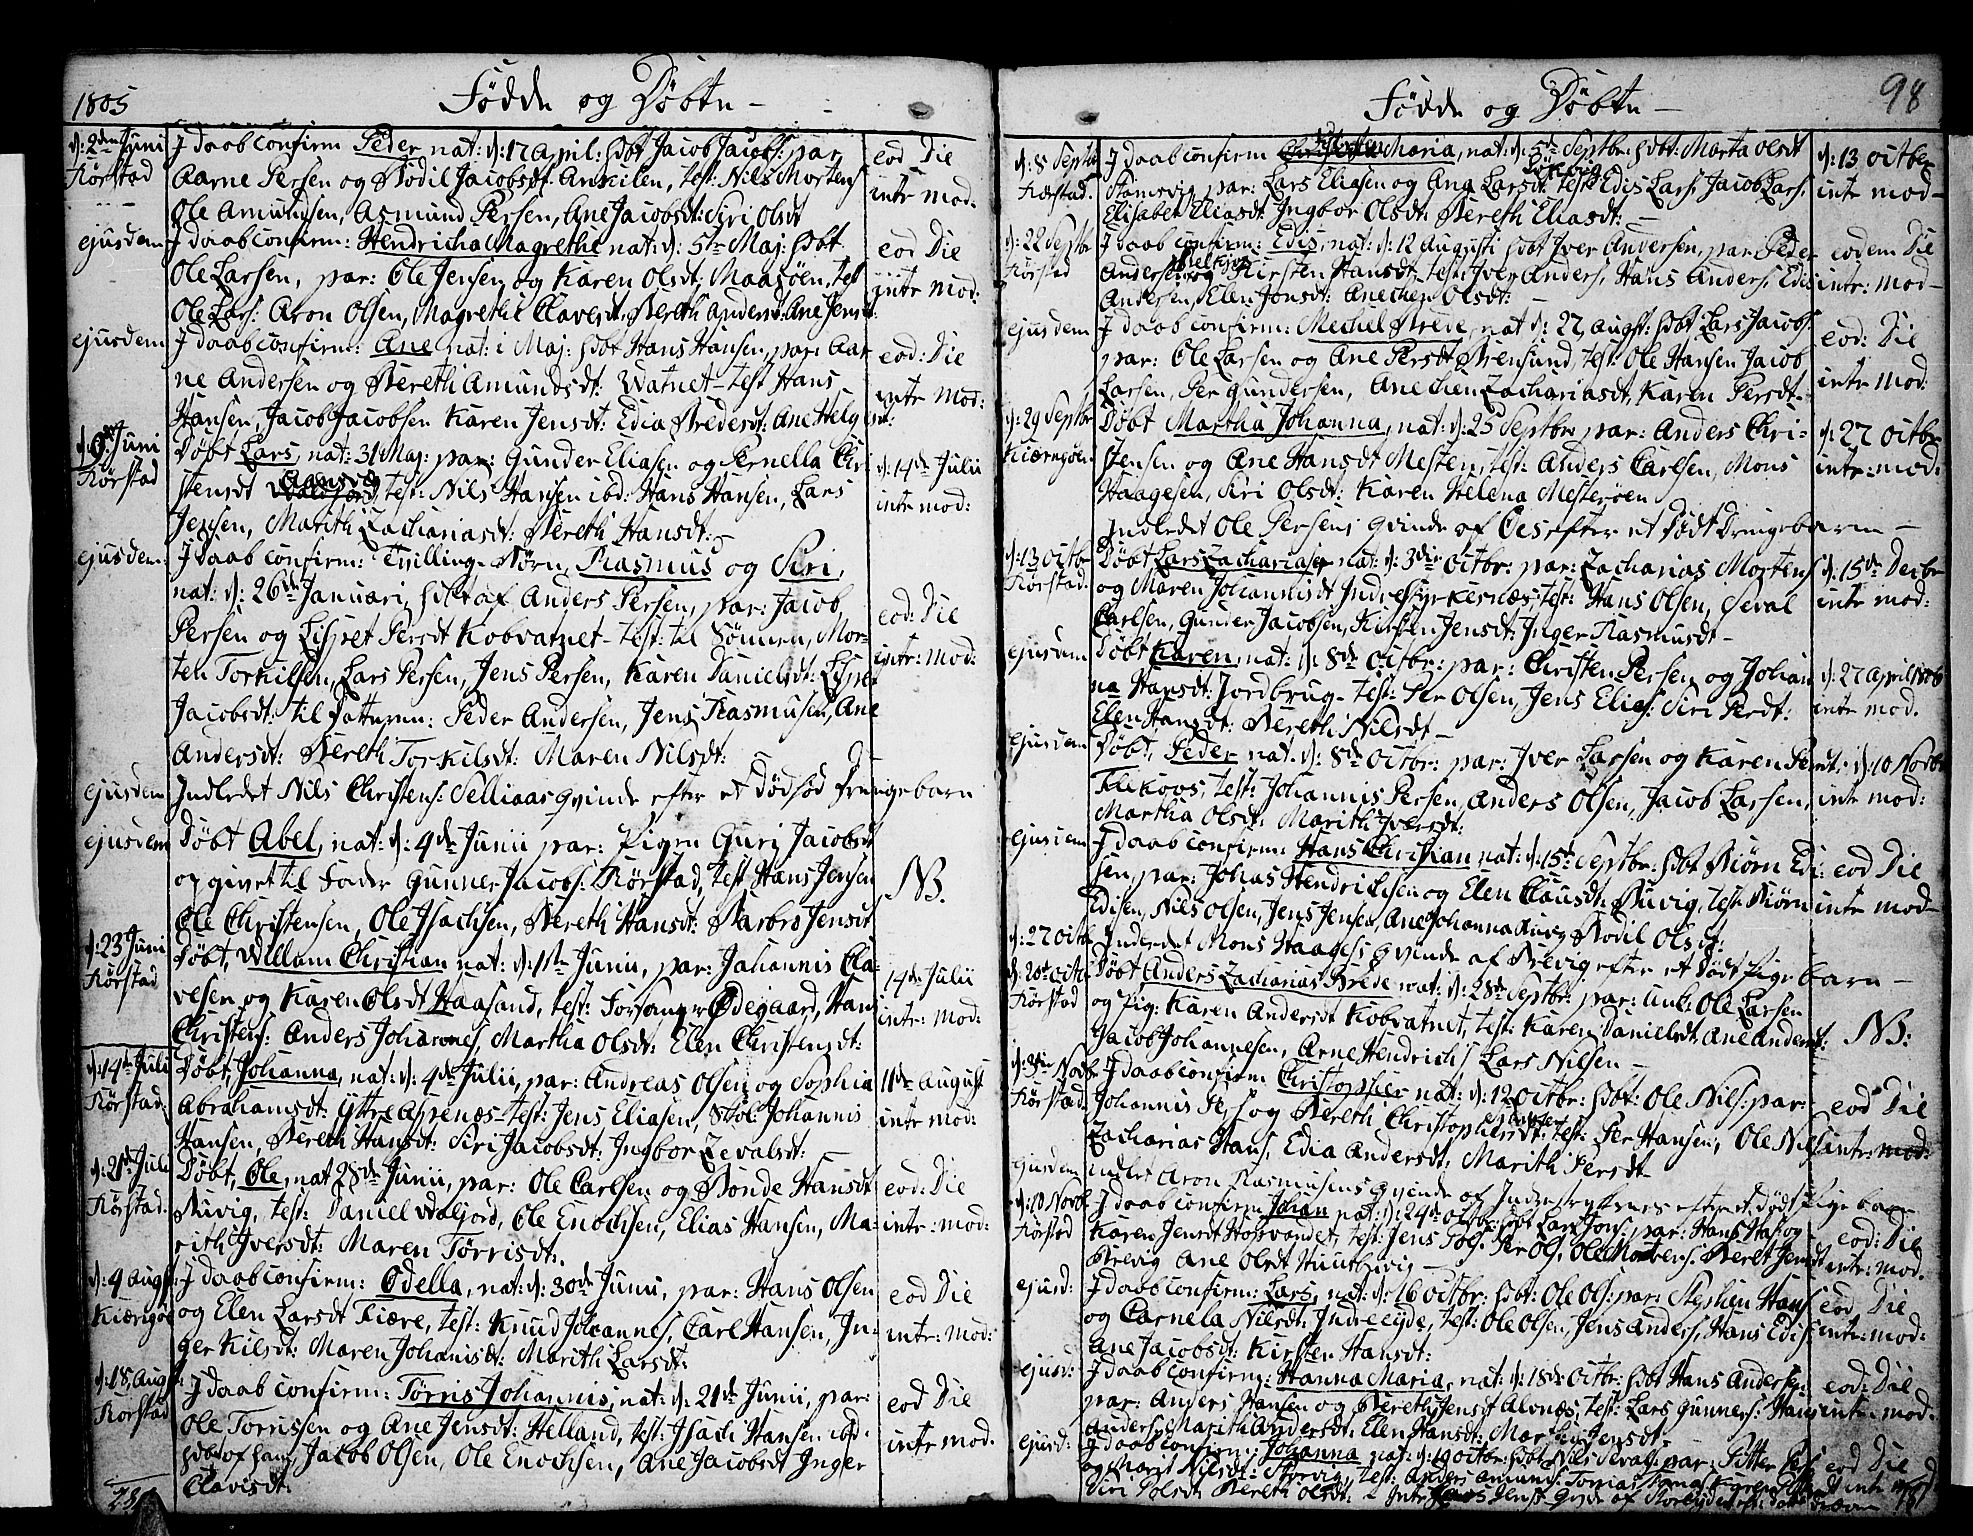 1805
Fødde og Døbte -
d: 2den Juni
Kørstad
I daab confirm Peder nat: d: 17 April: hbt Jacob Jacobs: par
Aarne Persen og Bodil Jacobsdt. test: Nils Mortens
Ole Amundsen, Asmund Persen, Ane Jacobsdt: Siri Olsdt
eod Die
intr mod:
ejusdem
I daab confirm: Hendricha Magrethe nat: d: 5te Maj: hbt
Ole Larsen, par: Ole Jensen og Karen Olsdt: Maasøen, test
Ole Lars: Aron Olsen, Magrethe Clavesdt: Bereth Andersd: Ane Jensdt:
eod Die
intr mod:
ejusdem
I daab confirm: Ane nat: 1 Maj: hbt Hans Hansen, par: Aar
ne Andersen og Bereth Amundsdt: Vatnet - test Hans
Hansen, Jacob Jacobsen Karen Jensdt: Edia Bredesdt: Ane Helgesdt:
eod: Die
intr mod:
Juni
Kørstad
Døbt Lars, nat: 31 Maj: par: Gunder Eliasen og Pernella Chri
stensdt test: Nils Hansen ibd: Hans Hansen, Lars
Jensen, Marith Zachariasdt: Bereth Hansdt: -
d: 14de Julii
intr mod:
ejusdem:
I Daab confirm: Tvilling-Børn, Rasmus og Siri,
nat: d: 26de Januari, hbt af Anders Persen, par: Jacob
Persen og Lisbet Persdt Kobvatnet - test: til Sønnen, Mor-
ten Torkilsen, Lars Persen, Jens Persen, Karen Danielsdt: Lisbet
Jacobsdt: til Datteren: Peder Andersen, Jens Rasmusen, Ane
Andersdt: Bereth Torkilsdt: Maren Nilsdt:
eod: Die
intr: mod:
ejusdem
Indledet Nils Christens: Selliaas qvinde efter et dødfød Drengebarn
ejusdem
Døbt Abel, nat: d: 4de Junii par: Pigen Guri Jacobsdt
opgivet til Fader Gunner Jacobs: Kørstad, test Hans Jensen
Ole Christensen, Ole Isachsen, Bereth Hansdt: Barbro Jensdt
NB.
d: 23 Juni
Kørstad
Døbt, Willum Christian nat: d: 11te Junii, par: Johannis Cla-
vesen og Karen Olsdt Haasand, test: Forsanger Ødegaard, Hans
Christens: Anders Johannes, Martha Olsdt: Elen Christensdt:
14de Julii
intr: mod:
d: 14de Juli
Kørstad:
Døbt, Johanna, nat: d: 4de Julii, par: Andreas Olsen og Sophia
Abrahamsdt: Yttre Aspenæs - test: Jens Eliasen, Skol: Johannis
Hansen, Bereth Hansdt: Siri Jacobsdt: Ingbor Zevalsdt: -
11de August
intr mod:
d: 21de Juli
Kørstad.
Døbt, Ole, nat 28de Junii, par: Ole Carlsen og Bonde Hansdt
Buvig, test: Daniel Valjord, Ole Enochsen, Elias Hansen, Ma-
rith Iversdt: Maren Tørrisdt:
eod: Die
intr: mod:
d: 4 Augst:
Kieringøe
I daab confirm: Odella, nat: d: 30de Junii, par: Hans Olsen
og Elen Larsdt Fiære, test: Knud Johannes, Carl Hansen, In-
ger Kilsdt: Maren Johanisdt: Marith Larsdt:
eod Die
intr: mod:
d: 18 Augst:
Kørstad
I daab confirm: Tørris Johannis, nat: d: 21de Junii, par:
Ole Torrissen og Ane Jensdt: Helland, test: Isach Hansen ibd:
hbt af ham, Jacob Olsen, Ole Enochsen, Ane Jacobsdt Inger
Clavisdt:
eod Die
intr mod:
98
Fødde og Døbte -
d: 8 Septbr
Kørstad.
I daab confirm Maria, nat: d: 5d Septbr: hbt: Marta Olsdt
Stamsvig par: Lars Eliasen og Ana Larsdt: test: Edis Lars: Jacob Lars:
Elisabet Eliasdt: Ingbor Olsdt: Bereth Eliasdt: -
d: 13 octbr
intr mod -
d: 22 Septbr
Kørstad
I daab confirm: Edis, nat: d: 12 Augusti hbt Iver Andersen, par: Peder
Andersen og Kirsten Hansdt: test: Iver Anders, Hans Anders, Edis
Andersen, Elen Jonsdt: Anechen Olsdt: -
eodem Die
intr: mod -
ejusdem
I daab confirm: Mechel Brede, nat d: 22 Augst: hbt: Lars Jacobs:
par: Ole Larsen og Ane Persdt Brensund, test: Ole Hansen Jacob
Larsen, Per Gundersen, Anechen Zachariasdt, Karen Persdt -
eod: Die
intr mod:
d: 29 Septbr
Kieringøen
Døbt Martha Johanna, nat: d: 25 Septbr, par: Anders Chri-
stensen og Ane Hansdt Mesten, test: Anders Carlsen, Mons
Haagesen, Siri Olsdt: Karen Helena Mesterøen
d: 27 octbr
intr: mod:
Indledet Ole Persens qvinde af Oes efter et Dødt Drengebarn -
d: 13 octbr
Kørstad:
Døbt Lars Zachariasen nat: d: 3die octbr: par: Zacharias Mortens
og Maren Johannisdt Indrestyrkesnæs, test: Hans Olsen, Seval
Carlsen, Gunder Jacobsen, Kirsten Jensdt: Inger Rasmusdt -
d: 15de Decbr
intr mod:
ejusdem
Døbt Karen, nat: d: 8de octbr: par: Christen Persen og Johan
na Hansdt: Jordbrug - test: Per Olsen, Jens Elias: Siri Persdt:
Elen Hansdt: Bereth Nilsdt -
d: 27 April 1806
intr mod.
ejusdem
Døbt, Peder nat: d: 8de octbr: par: Iver Larsen og Karen Persdt:
test: Johannis Persen, Anders Olsen, Jacob Larsen,
Martha Olsdt: Marith Iversdt:
d: 10 Novbr
intr mod:
ejusdem
I daab confirm: Hans Christian nat: d: 15 Septbr: hbt Biørn Edi
sen, par: Johas Hendrichsen og Elen Clausdt: Buvig, test: Biørn
Edisen, Nils Olsen, Jens Jensen, Ane Johanna Buvig Bodil Olsdt:
eod Die
intr mod -
d: 27 octb
Indledet Mons Haages qvinde af Brevig efter et Dødt Pigebarn -
d: 20de octbr
Kørstad
Døbt Anders Zacharias Brede nat: d: 28de Septbr: par: unk: Ole Larsen
og Pig: Karen Andersdt Kobvatnet, test: Karen Danielsdt Ane Andersdt:
Jacob Johannesen, Arne Hendrichs Lars Nilsen -
NB:
Novb
Kørstad.
I daab confirm Christopher nat: d: 12 octbr: hbt: Ole Nils: par:
Johannis Pers og Bereth Christophersdt: test: Per Hansen, Ole Nils
Zacharias Hans, Edia Andersdt: Marith Persdt
eod Die
intr: mod:
ejusdem
indlet Aron Rasmusens qvinde af efter et dødt Pigebarn
d: 10 Novbr
Kørstad
I daab confirm Johan nat: d: 24de octbr: hbt Lars Jons: par: Hans Hans og
Karen Jensdt test: Jens Per Ols, Ole Bereth Jensdt
Brevig Ane Olsdt -
eod: Die
intr: mod.
ejusd:
I daab confirm: Lars, nat: d: 16 octbr: hbt: Ole Ols: par: Stephen Hans
og Carnela Nilsdt: Indreeyde, test: Ole Olsen, Jens Anders, Hans Edis:
Ane Jacobsdt: Kirsten Hansdt:
eod Die
intr: mod:
ejusd:
I daab confirm: Hanna Maria, nat: d: 18de octbr: hbt Hans Andersen:
par: Anders Hansen og Bereth Jensdt Alvnæs, test: Lars Gunners: Hans
Anders, Marith Andersdt: Elen Hansdt: Jensdt
eod: Die
intr mod.
ejusd:
I daab confirm: Johanna nat: d: 19 octbr: hbt Nils Sevals: par: Pitter
og Marit Nilsdt: test: Anders
Siri Olsdt: Bereth Olsdt: -
eod Die
intr mod